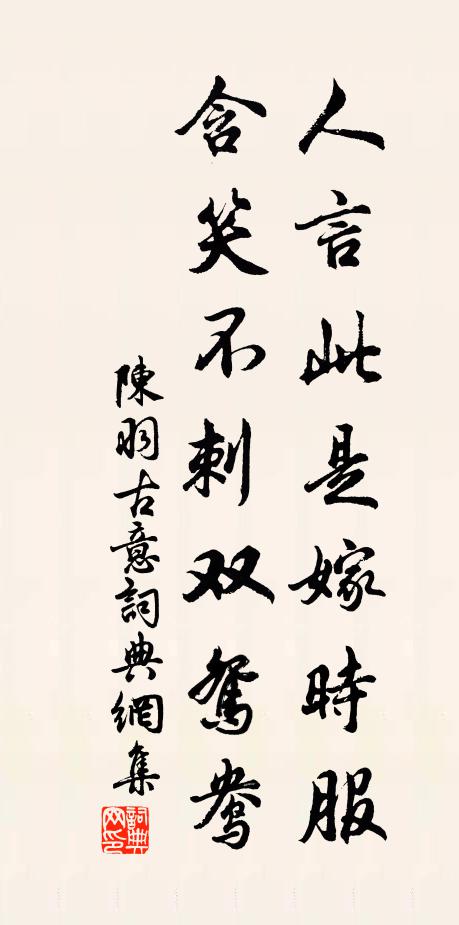 人言此是嫁時服
含笑不刺双鴛鴦
陳羽古意詞典網集
詞典网印